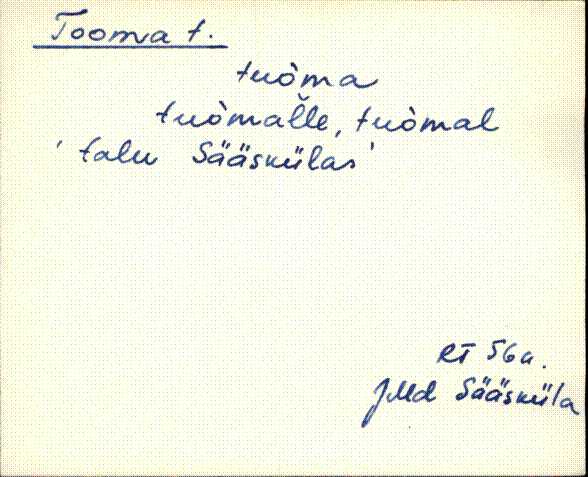 Tooma t.
tuòma
tuòmaĺĺe, tuòmal
' talu Sääskülas'
RT 56a.
JMd Sääsküla